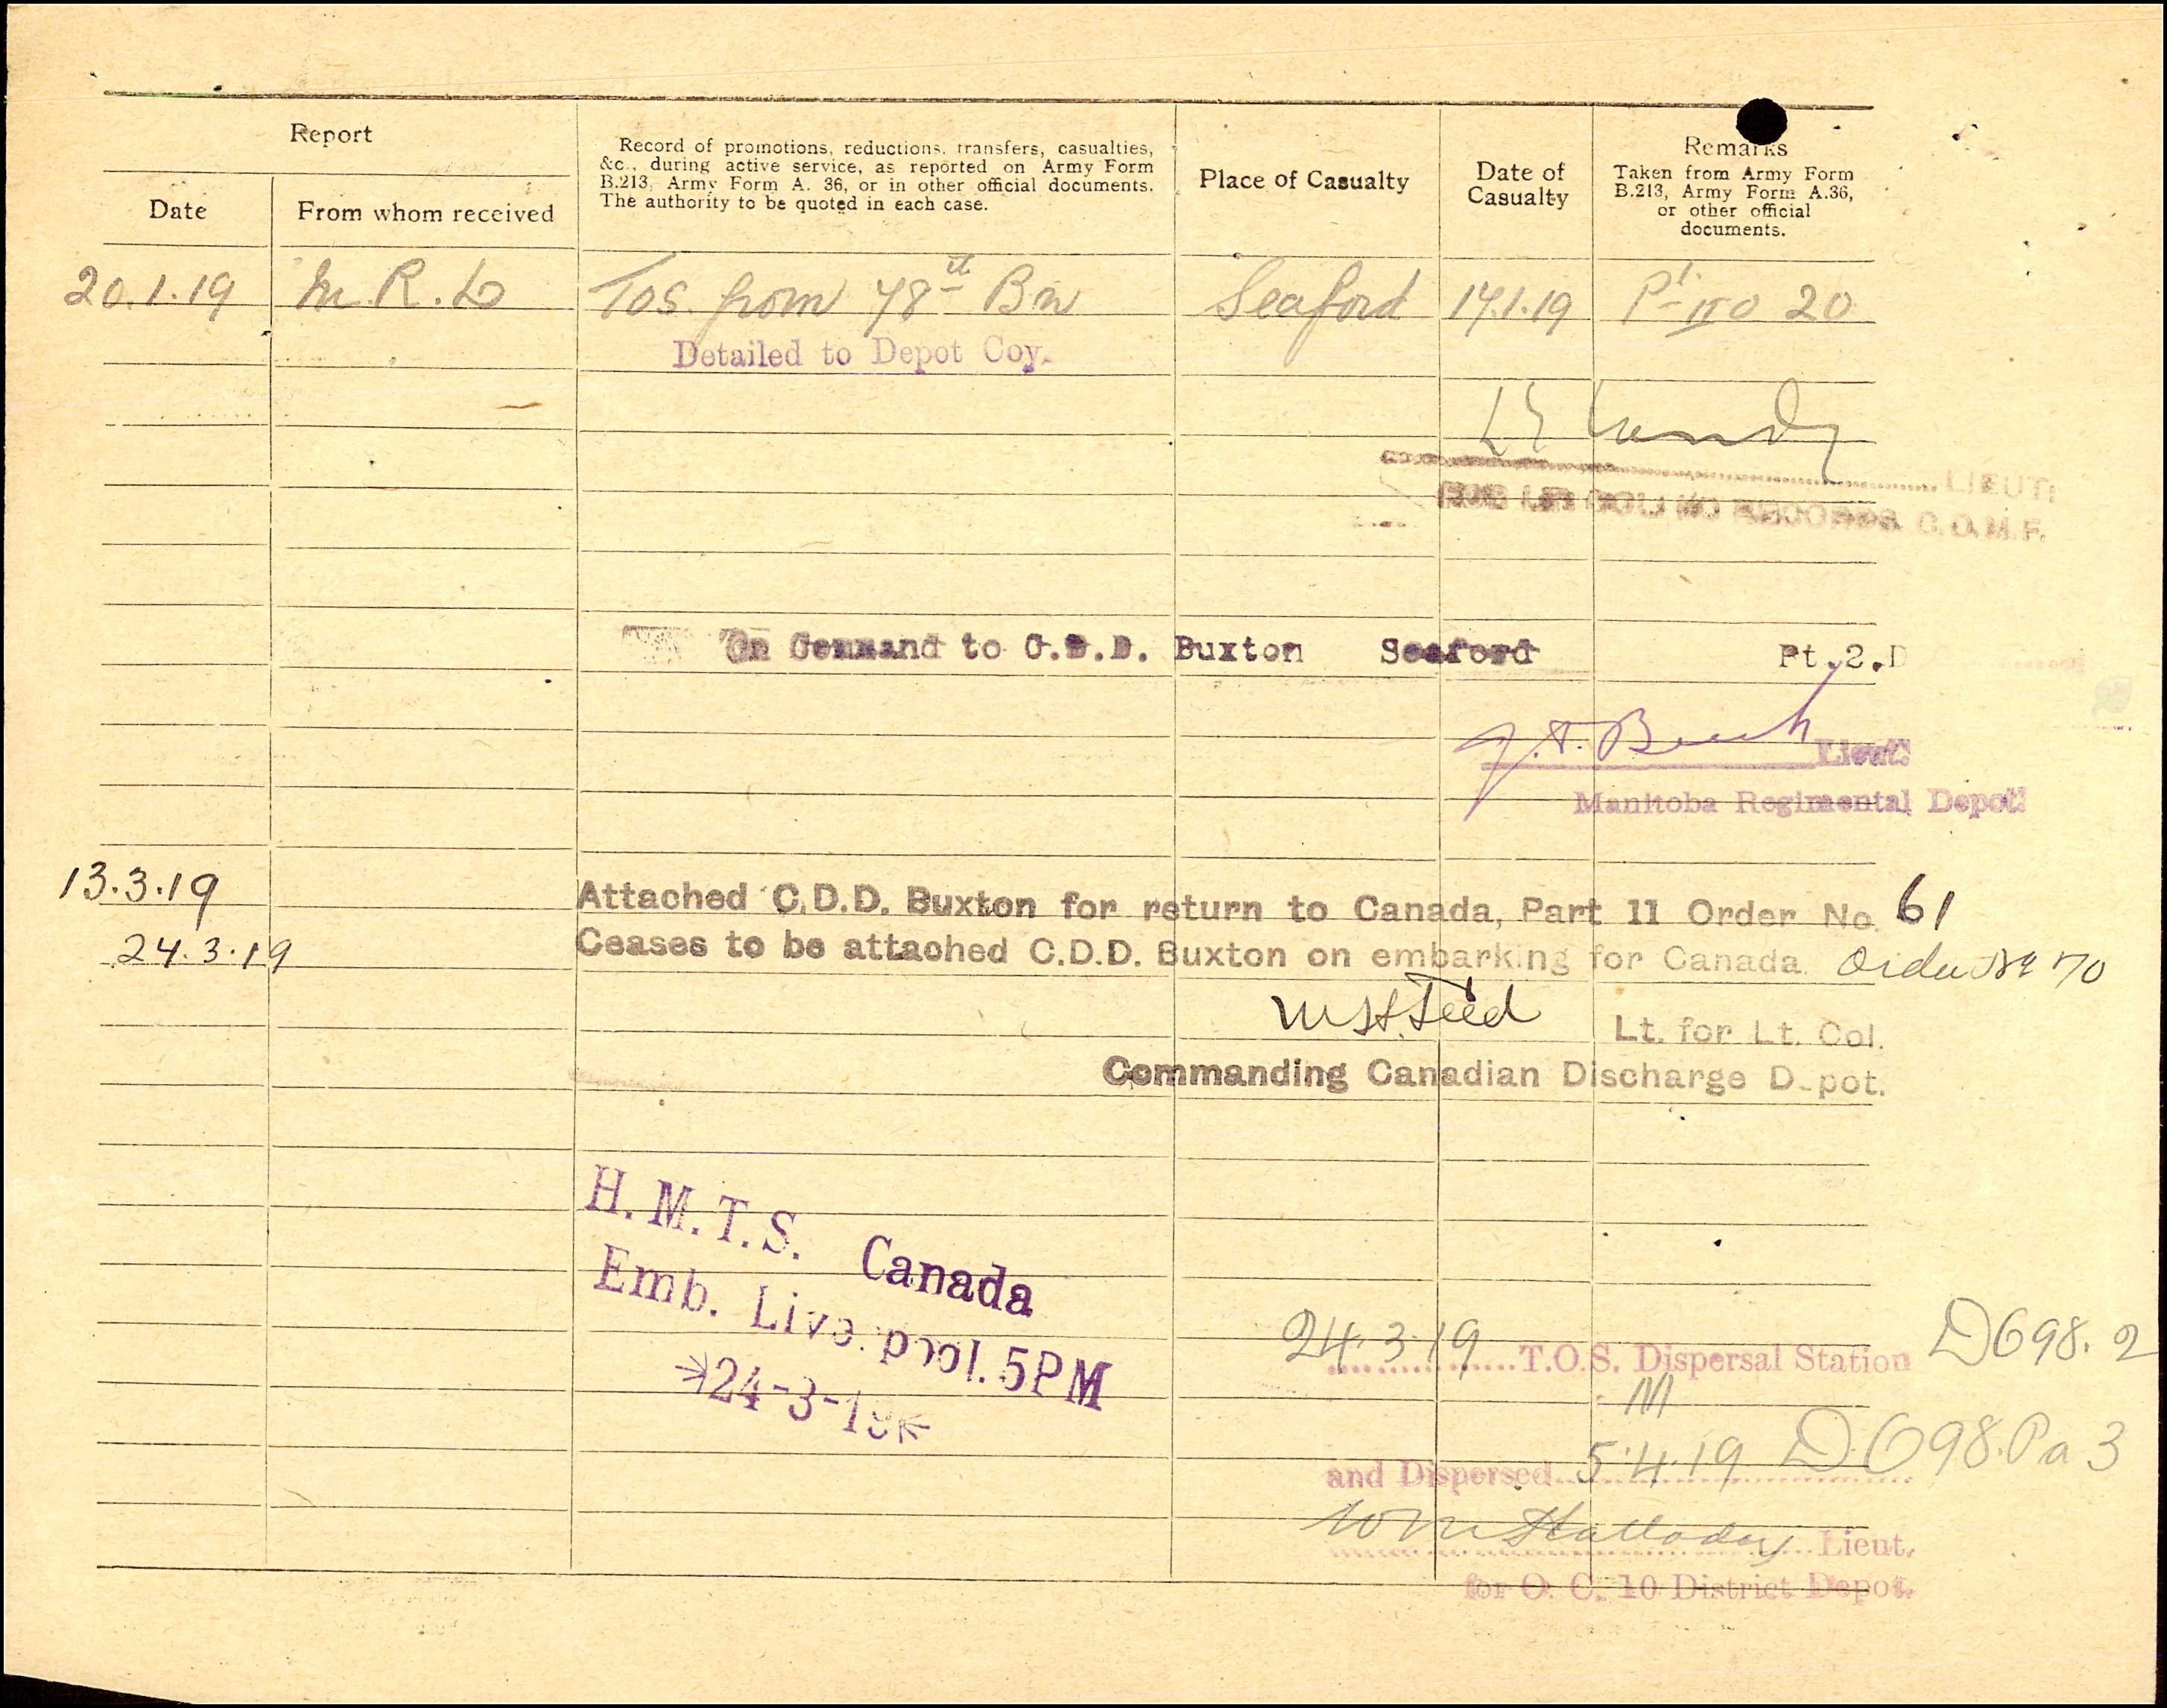 Report
Date
From whom received
Record of promotions, reductions, transfers, casualties,
&c., during active service, as reported on Army Form
B.213, Army Form A. 36, or in other official documents.
The authority to be quoted in each case.
Place of Casualty
Date of
Casualty
Remarks
Taken from Army Form
B.213, Army Form A.36,
or other official
documents.
20.1.19 M.R.D TOS. from 78th Bn Seaford 17.1.19 Pt II O 20
Detailed to Depot Coy.
LIEUT:
RECORDS C.O.M.F.
On Command to C.D.D. Buxton Seaford Pt.2.D
Lieut.
Manitoba Regimental Depot.
13.3.19 Attached C.D.D. Buxton for return to Canada, Part 11 Order No. 61
24.3.19 Ceases to be attached C.D.D. Buxton on embarking for Canada. Order No 70
Lt. for Lt. Col.
Commanding Canadian Discharge Depot.
H.M.T.S. Canada
Emb. Liverpool. 5PM
24-3-19
24.3.19 T.O.S. Dispersal Station D698.2
M
and Dispersed 5.4.19 D698.Pa 3
Lieut.
for O. C. 10 District Depot.